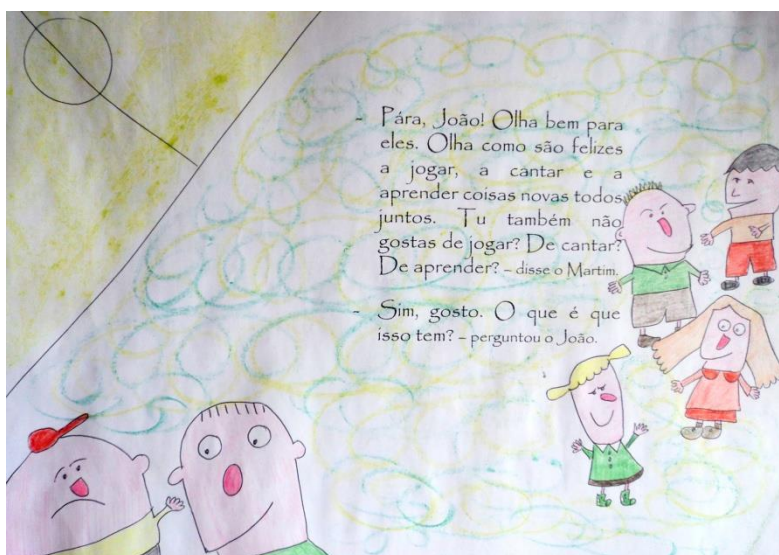 - Pára, João! Olha bem para
eles. Olha como são felizes
a jogar, a cantar e a
aprender coisas novas todos
juntos. Tu também não
gostas de jogar? De cantar?
De aprender? – disse o Martim.
- Sim, gosto. O que é que
isso tem? – perguntou o João.